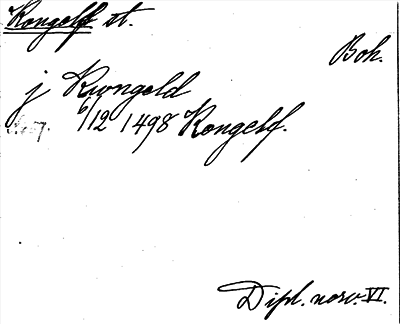 Kongelf st.
Boh.
j Kwngeld
6/12 1498 Kongelf.
Dipl. norv. VI.